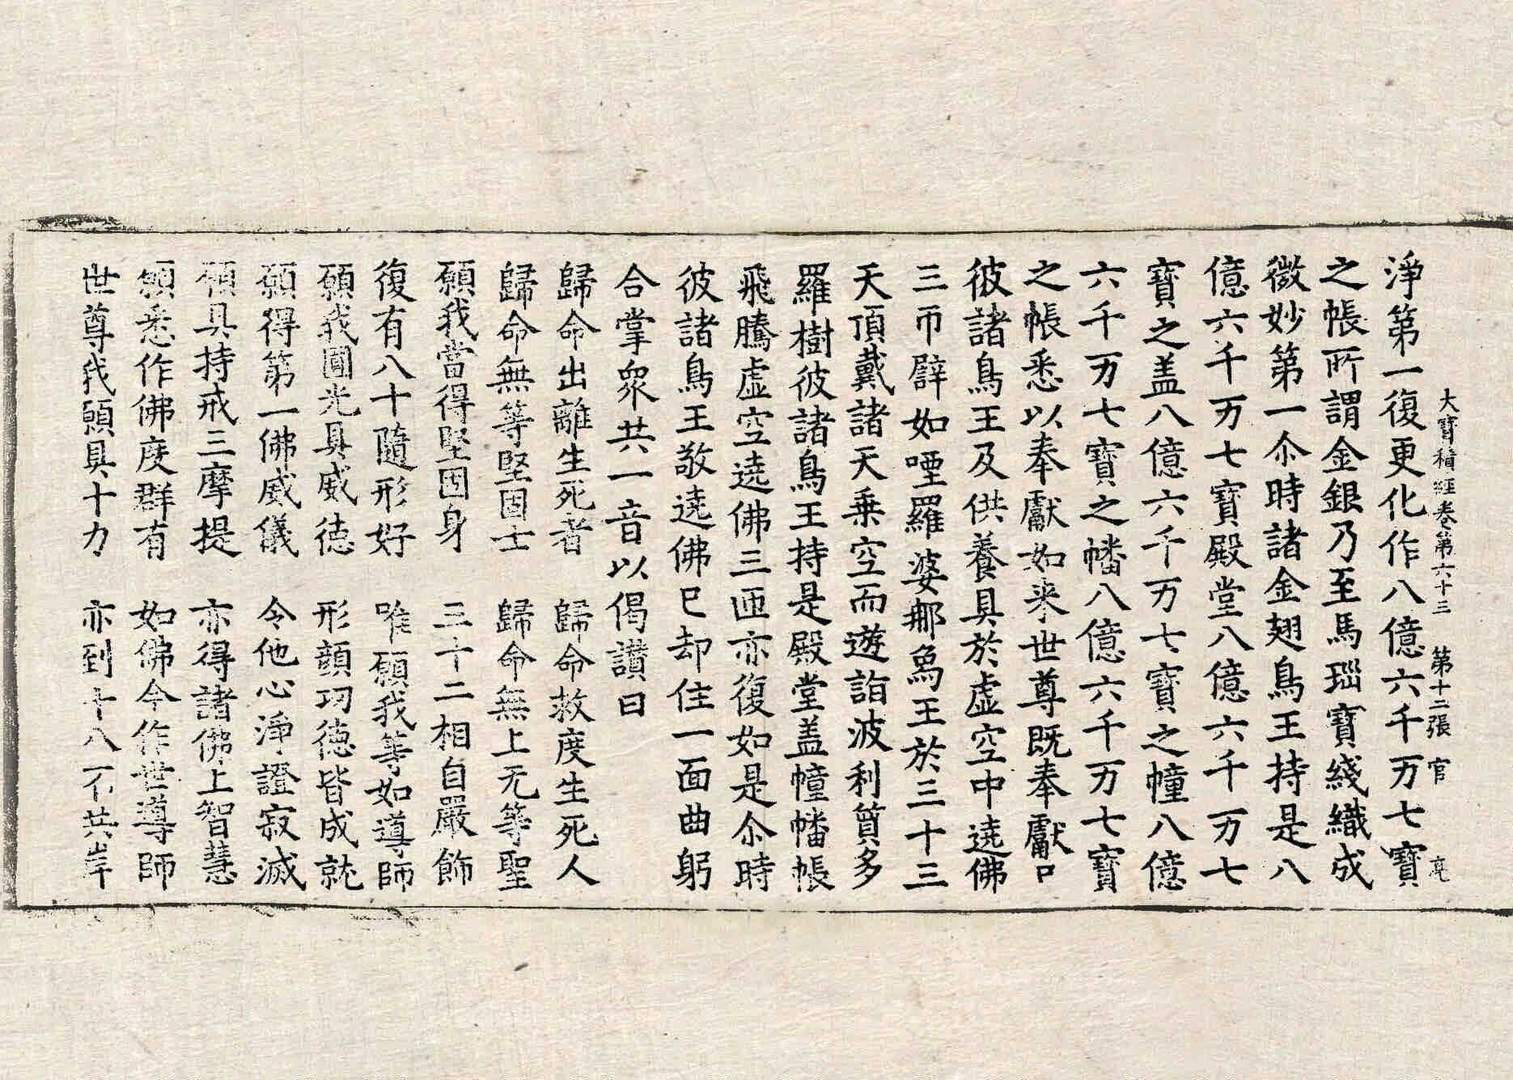 大寶積經卷第六十三　第十二張　官　亮
淨第一復更化作八億六千万七寶
之帳所謂金銀乃至馬瑙寶綫織成
微妙第一尒時諸金翅鳥王持是八
億六千万七寶殿堂八億六千万七
寶之盖八億六千万七寶之幢八億
六千万七寶之幡八億六千万七寶
之帳悉以奉獻如来世尊既奉獻已
彼諸鳥王及供養具於虛空中遶佛
三帀譬如堙羅婆那鳥王於三十三
天頂戴諸天乗空而遊詣波利質多
羅樹彼諸鳥王持是殿堂盖幢幡帳
飛騰虛空遶佛三匝亦復如是尒時
彼諸鳥王敬遶佛已却住一面曲躬
合掌衆共一音以偈讃曰
歸命出離生死者　歸命救度生死人
歸命無等堅固士　歸命無上无等聖
願我當得堅固身　三十二相自嚴飾
復有八十隨形好　唯願我等如導師
願我圓光具威徳　形顔功徳皆成就
願得第一佛威儀　令他心淨證寂滅
願具持戒三摩提　亦得諸佛上智慧
願悉作佛度群有　如佛今作世導師
世尊我願具十力　亦到十八不共岸